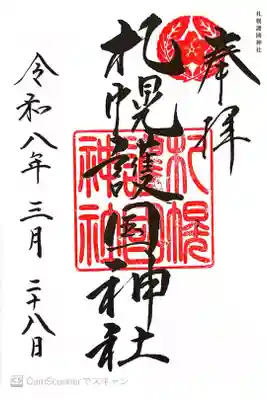 札幌護國神社
奉拝
札幌護国神社
札幌護國神社
令和八年三月二十八日
CS CamScanner でスキャン